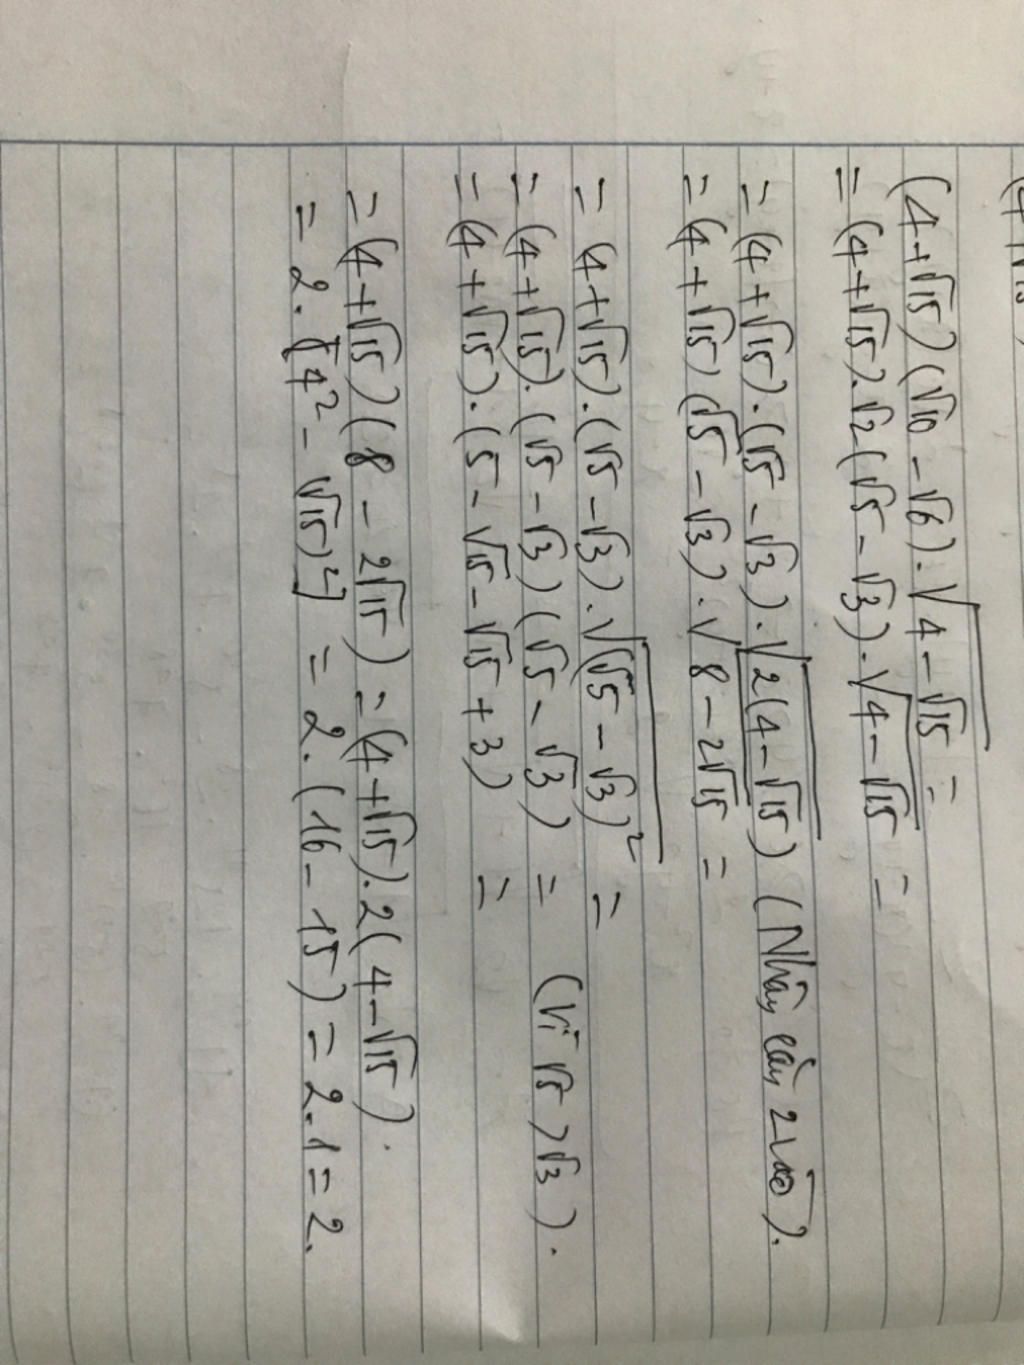 (4+√15)(√10 - √6).√(4-√15) =
= (4+√15).√2(√5-√3).√(4-√15) =
= (4+√15).(√5-√3).√(2(4-√15)) (Nhân căn 2 vào).
= (4+√15)(√5-√3).√(8-2√15) =
= (4+√15).(√5-√3).√((√5-√3)²) =
= (4+√15).(√5-√3)(√5-√3) = (Vì √5 > √3).
= (4+√15).(5-√15-√15+3) =
= (4+√15)(8-2√15) = (4+√15).2(4-√15).
= 2.[4²-√15)²] = 2.(16-15) = 2.1 = 2.